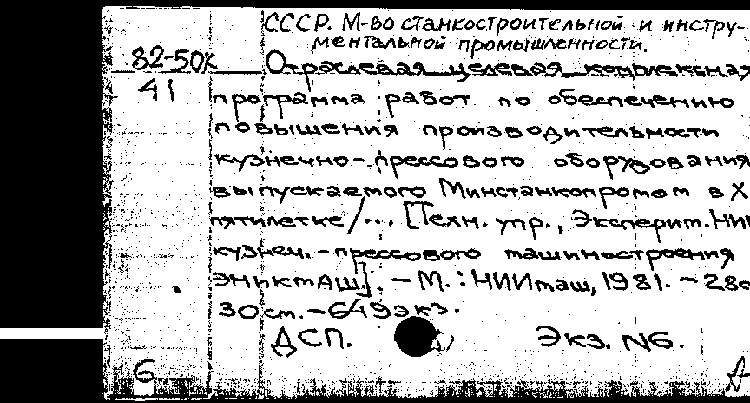 СССР. М-во станкостроительной и инстру-
ментальной промышленности.
82-50к Отраслевая целевая комплексная
41 программа работ по обеспечению
повышения производительности
кузнечно-прессового оборудования
выпускаемого Минстанкопромом в X
пятилетке/... [Техн. упр., Эксперит. НИИ
кузнеч.-прессового машиностроения
ЭНИКМАШ]. - М.: НИИмаш, 1981. - 28с
30 см. - 649 экз.
ДСП. Экз. №6.
6